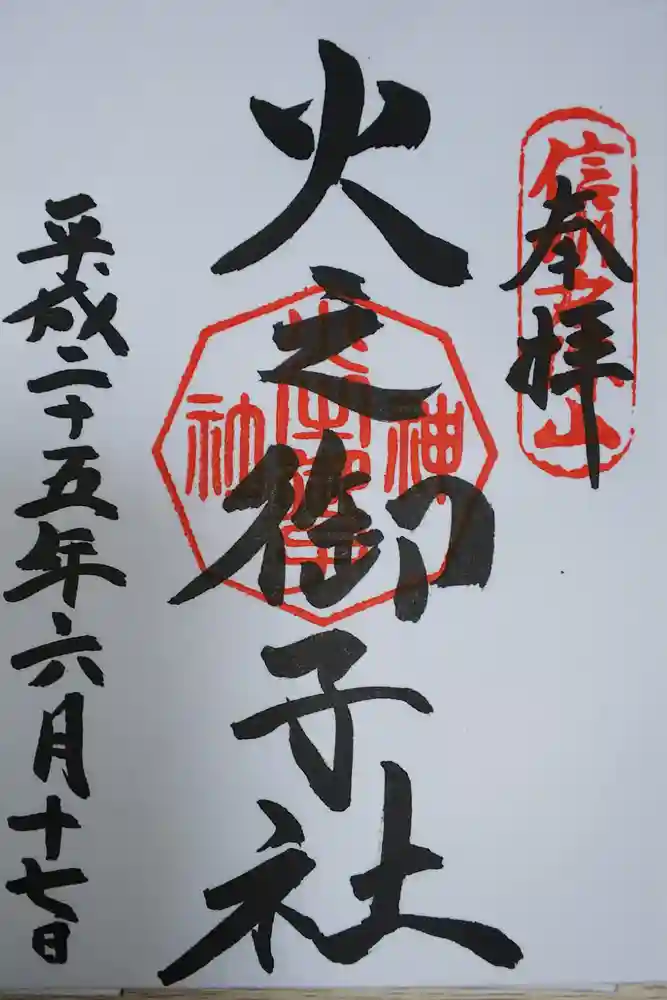 信州戸隠山
奉拝
火之御子社
神
社
平成二十五年六月十七日